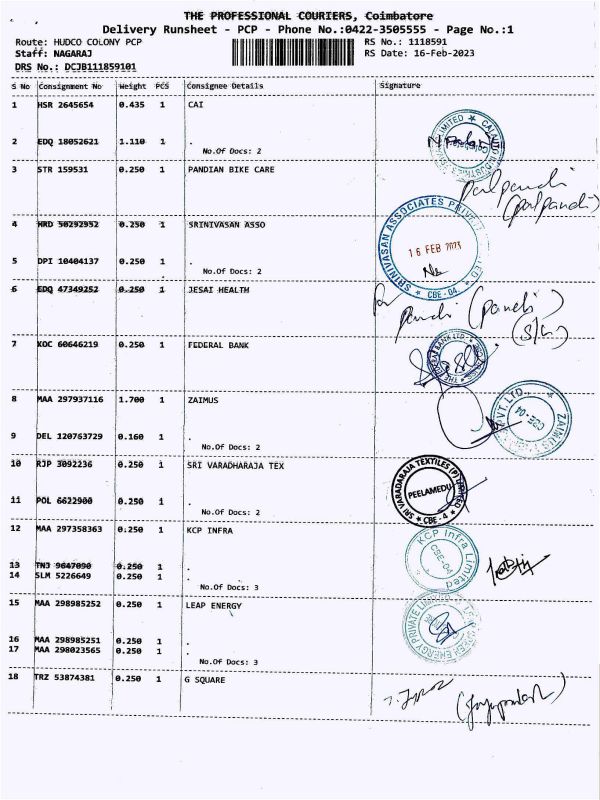 THE PROFESSIONAL COURIERS, Coimbatore
Delivery Runsheet - PCP - Phone No.:0422-3505555 - Page No.:1
Route: HUDCO COLONY PCP
RS No.: 1118591
Staff: NAGARAJ
RS Date: 16-Feb-2023
DRS No.: DCJB111859101
S No Consignment No Weight PCS Consignee Details Signature
1 HSR 2645654 0.435 1 CAI
2 EDQ 18052621 1.110 1 .
No.Of Docs: 2
3 STR 159531 0.250 1 PANDIAN BIKE CARE
palpandi
(palpandi)
4 HRD 50292952 0.250 1 SRINIVASAN ASSO
SRINIVASAN ASSOCIATES PRIVATE LIMITED
16 FEB 2023
CBE-04
5 DPI 10404137 0.250 1 .
No.Of Docs: 2
6 EDQ 47349252 0.250 1 JESAI HEALTH
pandi (pandi)
7 KOC 60646219 0.250 1 FEDERAL BANK
8 MAA 297937116 1.700 1 ZAIMUS
ZAIMUS
PVT. LTD.
CBE-04
9 DEL 120763729 0.160 1 .
No.Of Docs: 2
10 RJP 3092236 0.250 1 SRI VARADHARAJA TEX
SRI VARADARAJA TEXTILES (P) LIMITED
PEELAMEDU
CBE-4
11 POL 6622900 0.250 1 .
No.Of Docs: 2
12 MAA 297358363 0.250 1 KCP INFRA
KCP Infra Limited
CBE-04
13 TNJ 9647090 0.250 1 .
14 SLM 5226649 0.250 1 .
No.Of Docs: 3
15 MAA 298985252 0.250 1 LEAP ENERGY
ENERGY PRIVATE LIMITED
16 MAA 298985251 0.250 1 .
17 MAA 298023565 0.250 1 .
No.Of Docs: 3
18 TRZ 53874381 0.250 1 G SQUARE